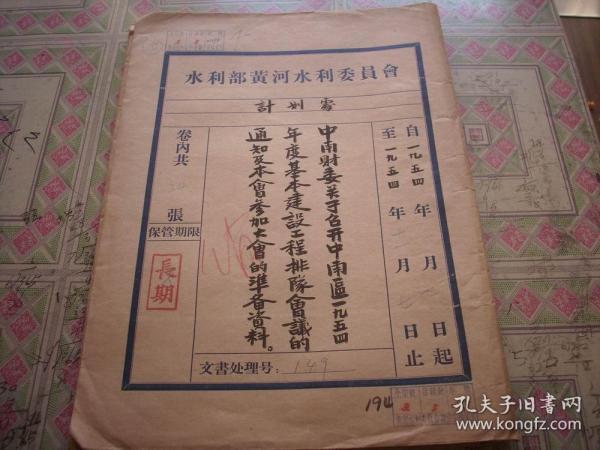 水利部黃河水利委員會
計划處
自一九五四年 月 日起
至一九五四年 月 日止
中南財委关于召开中南區一九五四
年度基本建設工程排隊會議的
通知及本會參加大會的準备資料。
卷內共 張
保管期限
長期
文書处理号：149
194
孔夫子旧书网
www.kongfz.com